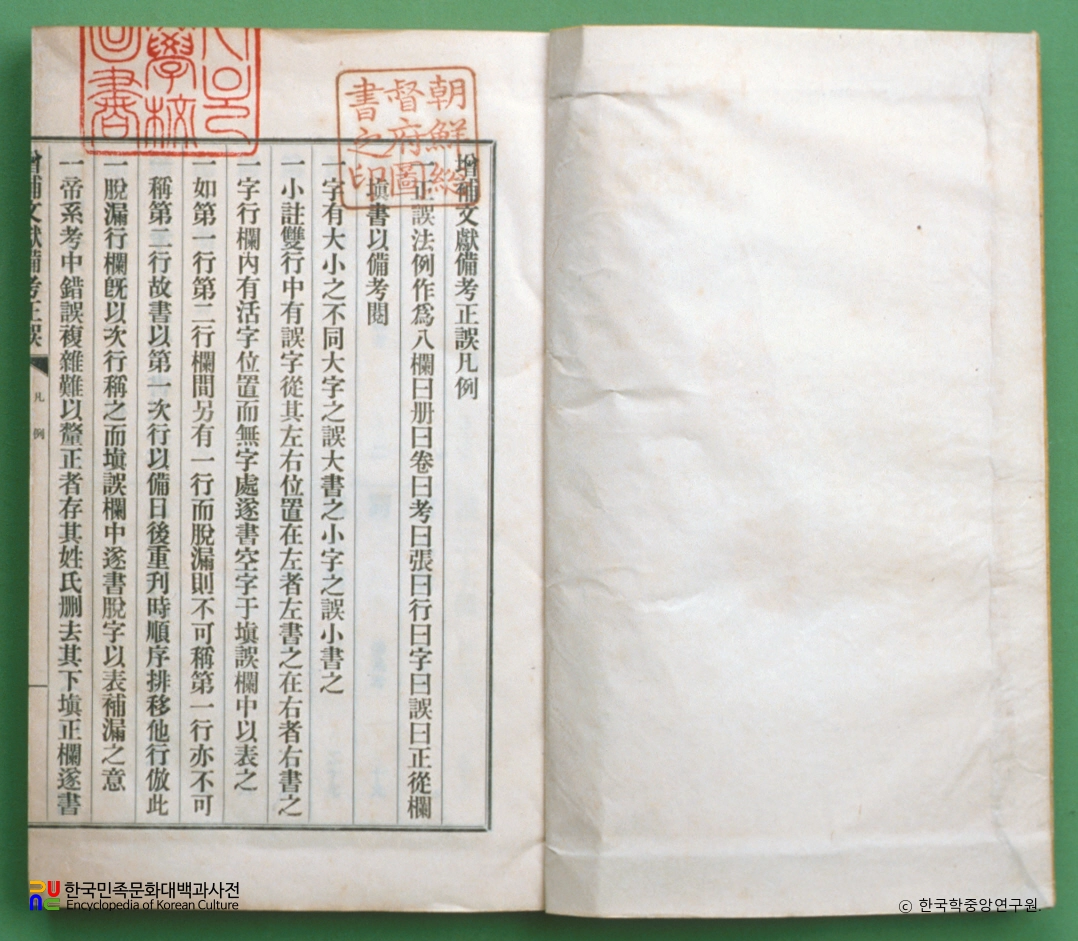 增補文獻備考正誤凡例
一正誤法例作爲八欄曰册曰卷曰考曰張曰行曰字曰誤曰正從欄
塡書以備考閱
一字有大小之不同大字之誤大書之小字之誤小書之
一小註雙行中有誤字從其左右位置在左者左書之在右者右書之
一字行欄內有活字位置而無字處遂書空字于塡誤欄中以表之
一如第一行第二行欄間另有一行而脫漏則不可稱第一行亦不可
稱第二行故書以第一次行以備日後重刊時順序排移他行倣此
一脫漏行欄旣以次行稱之而塡誤欄中遂書脫字以表補漏之意
一帝系考中錯誤複雜難以釐正者存其姓氏删去其下塡正欄遂書
增補文獻備考正誤
凡例
朝鮮總
督府圖
書之印
學校
圖書
한국민족문화대백과사전
Encyclopedia of Korean Culture
ⓒ 한국학중앙연구원.